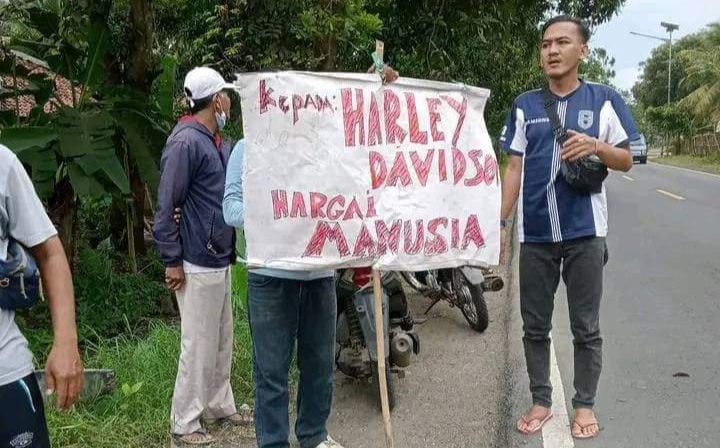 Kepada:
HARLEY
DAVIDSO
HARGAI
MANUSIA